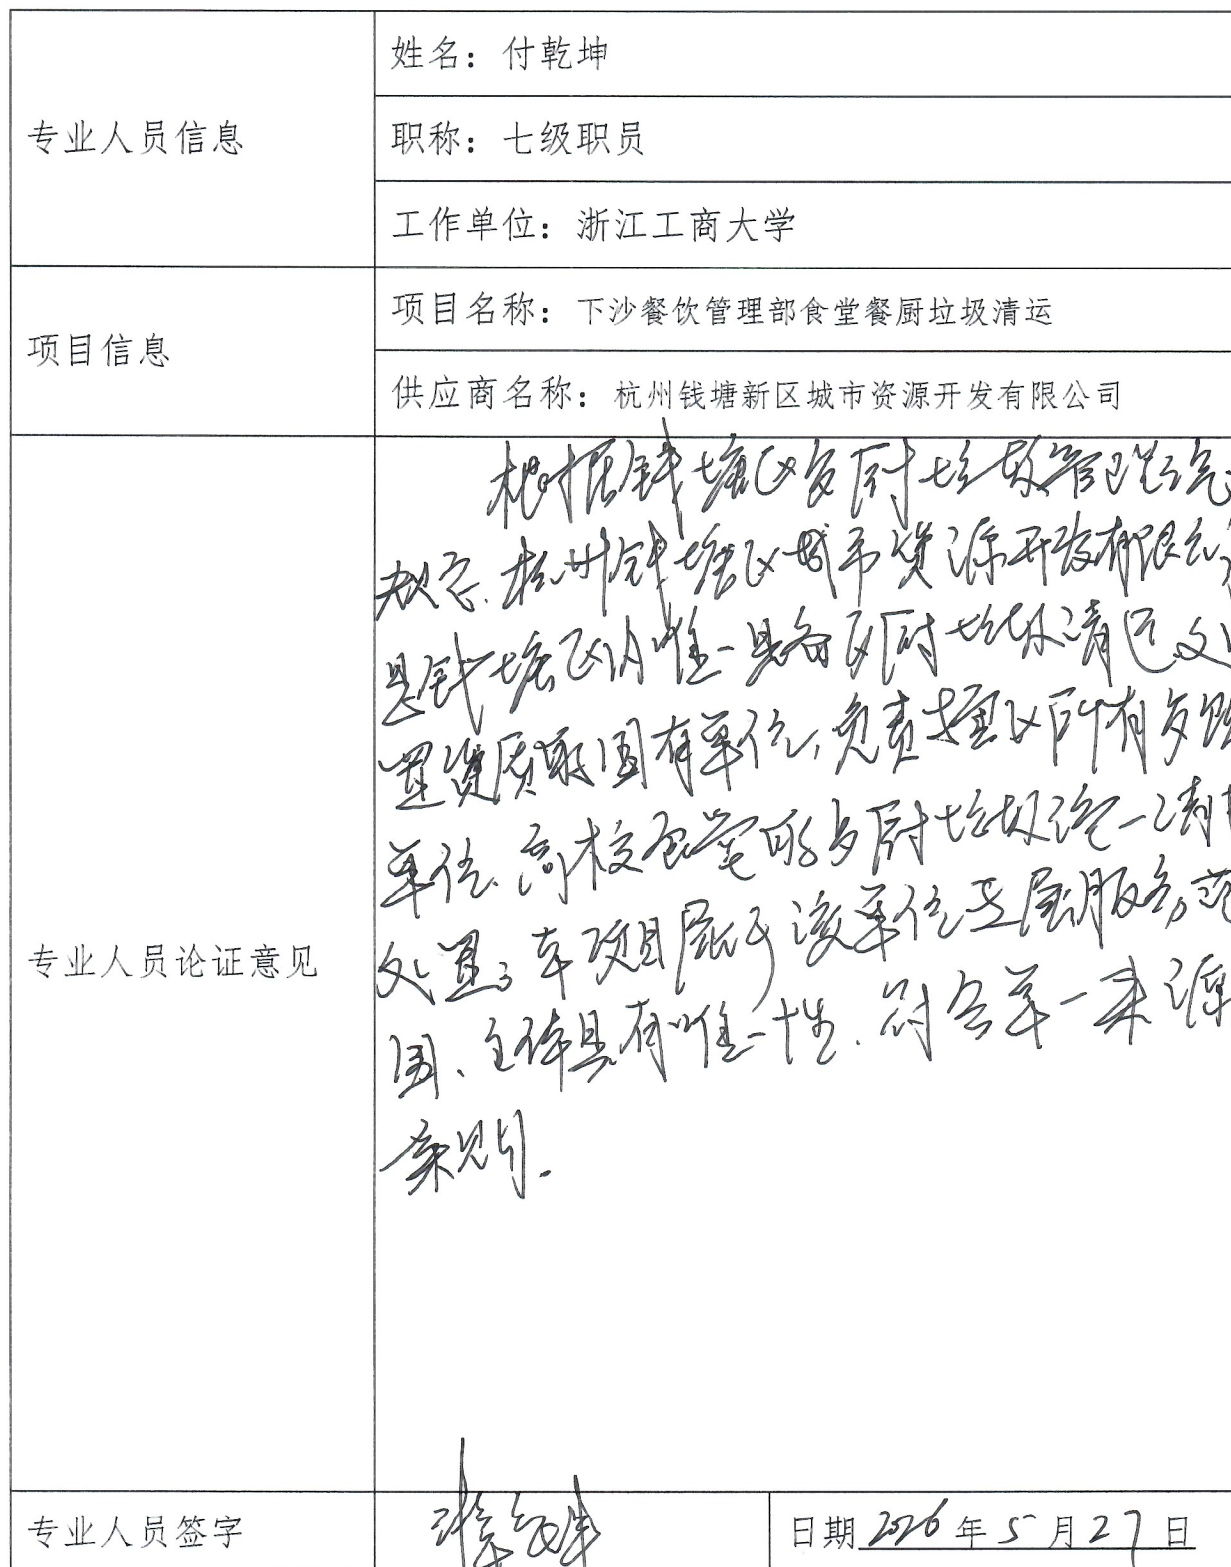 专业人员信息
姓名：付乾坤
职称：七级职员
工作单位：浙江工商大学
项目信息
项目名称：下沙餐饮管理部食堂餐厨垃圾清运
供应商名称：杭州钱塘新区城市资源开发有限公司
专业人员论证意见
根据钱塘区餐厨垃圾管理
杭州钱塘区城市资源开发有限公
是钱塘区内唯一具备餐厨垃圾清运处
置资质的国有单位，负责辖区所有餐饮
单位、高校食堂的餐厨垃圾统一清
处置。本项目属于该单位专属服务范
围、主体具有唯一性，符合单一来源
原则.
专业人员签字
日期 2026 年 5 月 27 日